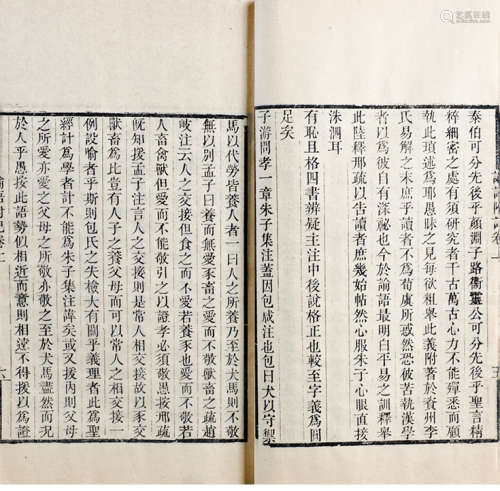 論語附記卷上
泰伯可分先後乎顏淵子路衞靈公可分先後乎言精
粹細密之處有須研究者千古萬古心力不能殫悉而顧
執此瑣述為耶愚昧之見每欲粗舉此義附著於賓州李
氏易解之末庶乎讀者不為荀虞所惑然恐破苦執漢學
者以為彼自有深祕也今於論語最明白平易之訓釋舉
此陸釋邢疏以告讀者庶幾始帖然心服朱子心眼直接
洙泗耳
有恥且格四書辨疑王滹南中後說格正也較於字義為
足矣
子游問孝一章朱子集注蓋因包咸注也包曰犬以守禦
馬以代勞皆養人者一曰人之所養乃至於犬馬則不敬
無以別孟子曰養而無愛豕畜之愛而不敬獸畜之疏趙
岐注云人之交接但食之而不愛若養豕也愛而不敬若
人畜禽獸但愛而不能敬引之以證孝必須敬愚按邢疏
旣知援孟子注言人之交接則是常人相交接故以豕交
獸畜為比豈有人子之養父母而可以常人之相交接一
例設喻者乎斯則包氏之失檢大有關乎義理者此為聖
經計為學者計不能為朱子集注諱矣或又援內則父母
之所愛亦愛之父母之所敬亦敬之至於犬馬盡然而況
於人乎愚按此語勢似相近而意則相遠不得援以為證
論語附記卷上
六